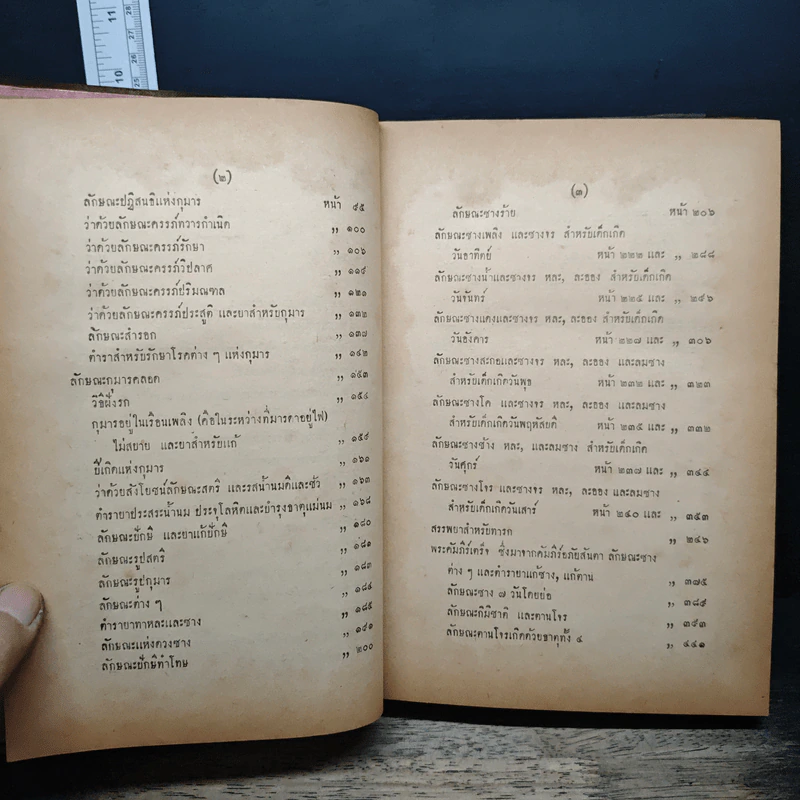 11
10
28
27
26
25
(๒)
ลักษณะปฏิสนธิแห่งกุมาร หน้า ๙๕
ว่าด้วยลักษณะครรภ์ทวารกำเนิด ,, ๑๐๐
ว่าด้วยลักษณะครรภ์รักษา ,, ๑๐๖
ว่าด้วยลักษณะครรภ์วิปลาศ ,, ๑๑๙
ว่าด้วยลักษณะครรภ์ปริมณฑล ,, ๑๒๑
ว่าด้วยลักษณะครรภ์ประสูติ และยาสำหรับกุมาร ,, ๑๓๒
ลักษณะสำรอก ,, ๑๓๗
ตำราสำหรับรักษาโรคต่าง ๆ แห่งกุมาร ,, ๑๔๒
ลักษณะกุมารคลอด ,, ๑๕๓
วิธีฝังรก ,, ๑๕๔
กุมารอยู่ในเรือนเพลิง (คือในระหว่างที่มารดาอยู่ไฟ)
ไม่สบาย และยาสำหรับแก้ ,, ๑๕๙
ปีเกิดแห่งกุมาร ,, ๑๖๑
ว่าด้วยสังโยชน์ลักษณะสตรี และรสน้ำนมดีและชั่ว ,, ๑๖๓
ตำรายาประสระน้ำนม ประจุโลหิตและบำรุงธาตุแม่นม ,, ๑๖๘
ลักษณะยักษิ และยาแก้ยักษิ ,, ๑๘๐
ลักษณะรูปสตรี ,, ๑๘๑
ลักษณะรูปกุมาร ,, ๑๘๓
ลักษณะต่าง ๆ ,, ๑๘๔
ตำรายาทาหละและซาง ,, ๑๘๕
ลักษณะแห่งดวงซาง ,, ๑๙๑
ลักษณะยักษิทำโทษ ,, ๒๐๐
(๓)
ลักษณะซางร้าย หน้า ๒๐๖
ลักษณะซางเพลิง และซางจร สำหรับเด็กเกิด
วันอาทิตย์ หน้า ๒๒๒ และ ,, ๒๘๘
ลักษณะซางน้ำและซางจร หละ, ละออง สำหรับเด็กเกิด
วันจันทร์ หน้า ๒๒๕ และ ,, ๒๙๖
ลักษณะซางแดงและซางจร หละ, ละออง สำหรับเด็กเกิด
วันอังคาร หน้า ๒๒๗ และ ,, ๓๐๖
ลักษณะซางสะกอและซางจร หละ, ละออง และลมซาง
สำหรับเด็กเกิดวันพุธ หน้า ๒๓๒ และ ,, ๓๒๓
ลักษณะซางโค และซางจร หละ, ละออง และลมซาง
สำหรับเด็กเกิดวันพฤหัสบดี หน้า ๒๓๕ และ ,, ๓๓๒
ลักษณะซางช้าง หละ, และลมซาง สำหรับเด็กเกิด
วันศุกร์ หน้า ๒๓๗ และ ,, ๓๔๔
ลักษณะซางโจร และซางจร หละ, ละออง และลมซาง
สำหรับเด็กเกิดวันเสาร์ หน้า ๒๔๐ และ ,, ๓๕๓
สรรพยาสำหรับทารก ,, ๒๔๖
พระคัมภิร์เตร็จ ซึ่งมาจากคัมภิร์อภัยสันตา ลักษณะซาง
ต่าง ๆ และตำรายาแก้ซาง, แก้ตาน ,, ๓๗๕
ลักษณะซาง ๗ วันโดยย่อ ,, ๓๘๙
ลักษณะกิมิชาติ และตานโจร ,, ๓๙๓
ลักษณะตานโจรเกิดด้วยธาตุทั้ง ๔ ,, ๔๔๑